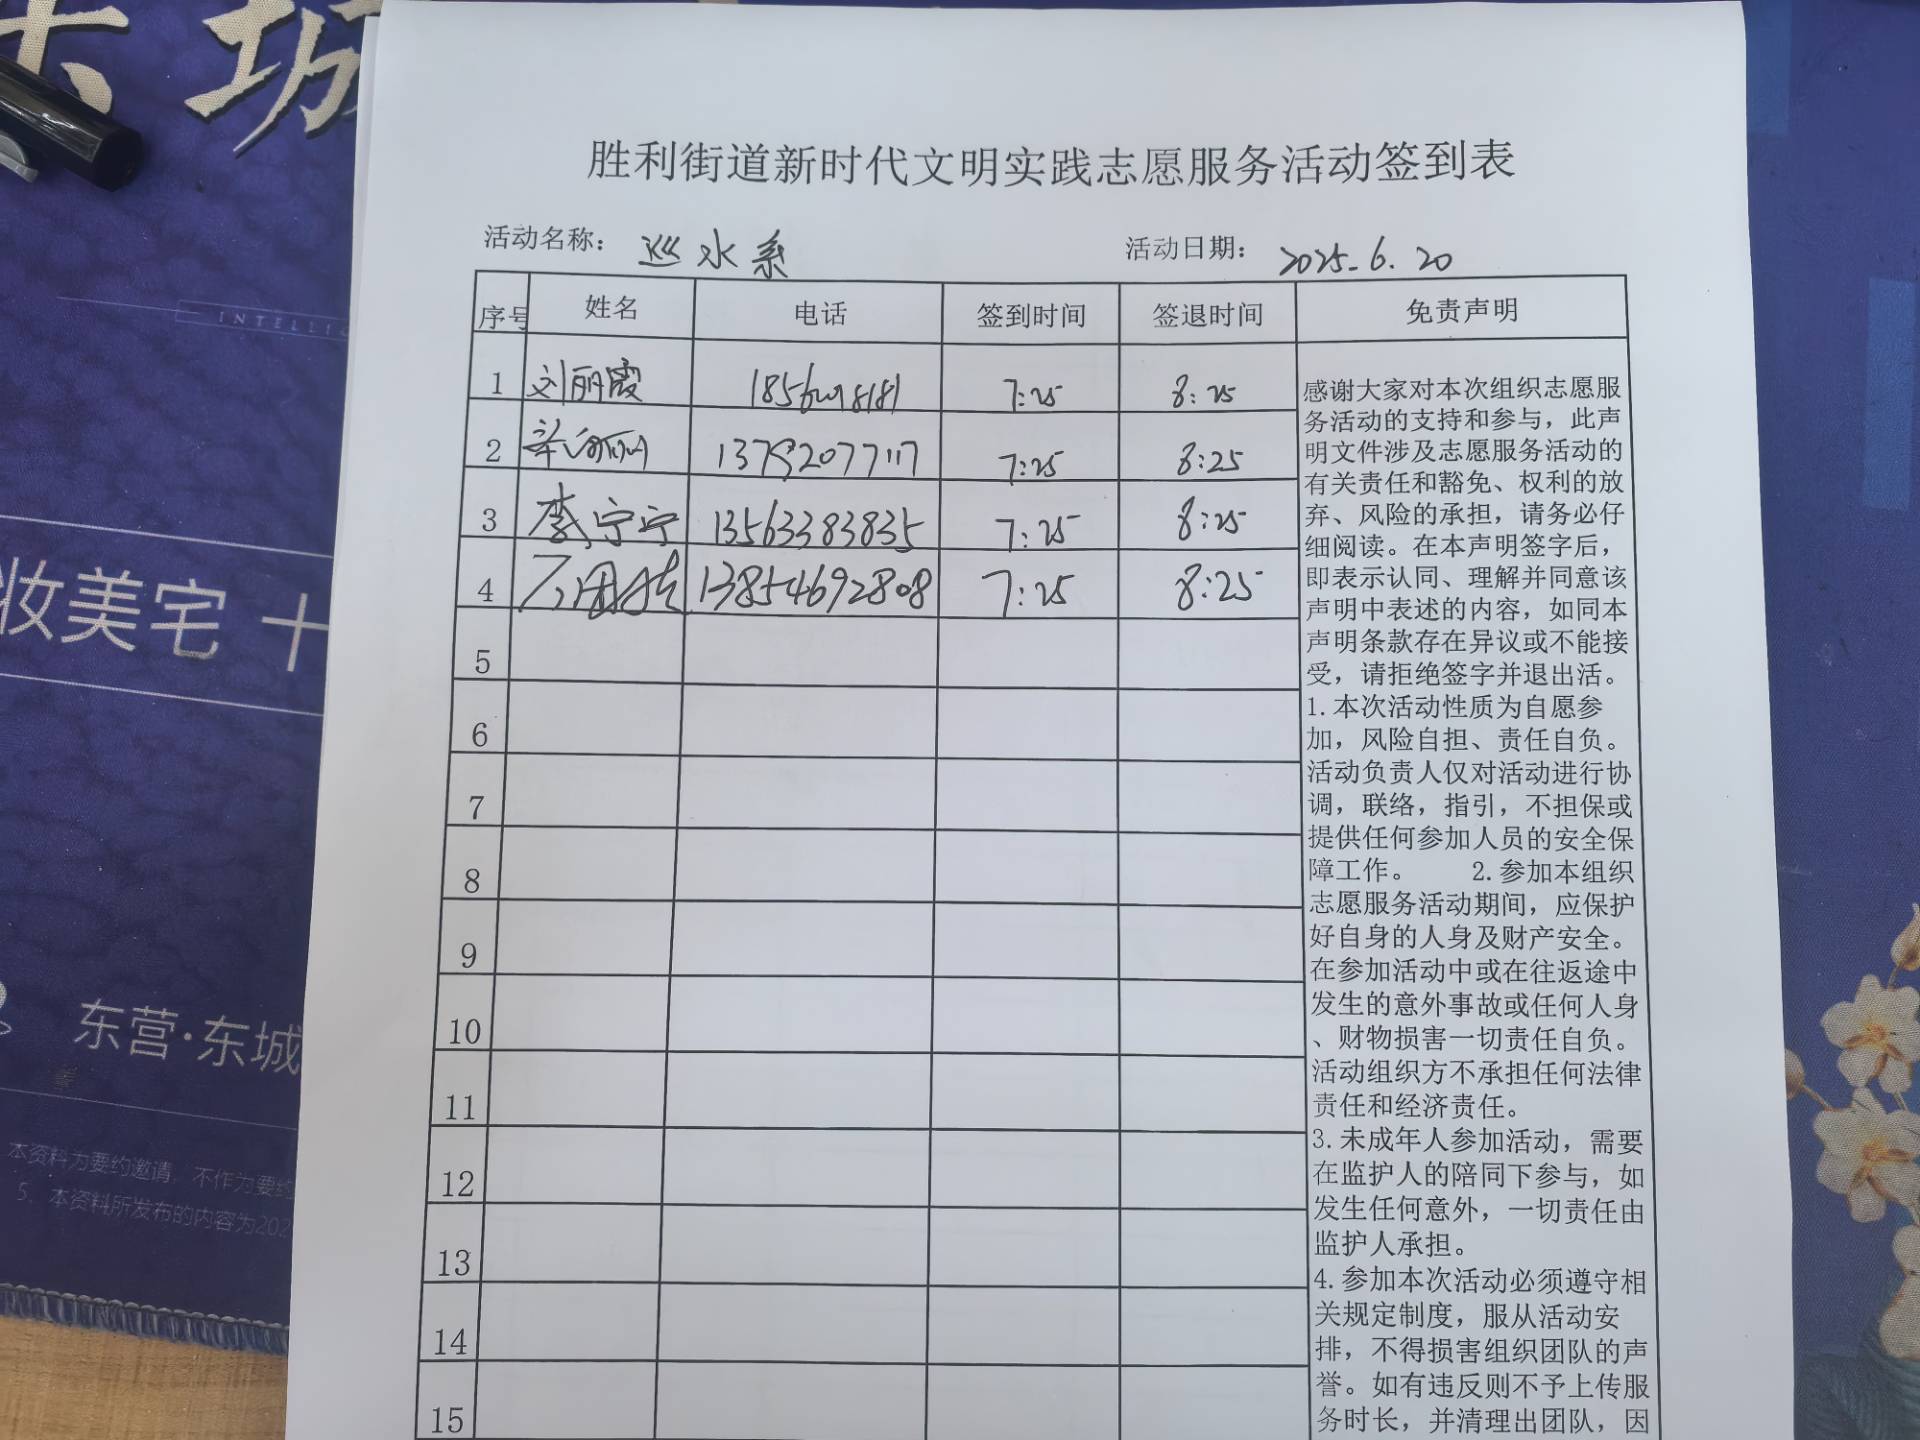 东 城
INTELLIG
妆美宅 十
东营·东城
本资料为要约邀请，不作为要约
5、本资料所发布的内容为202
胜利街道新时代文明实践志愿服务活动签到表
活动名称： 巡水系 活动日期： 2025.6.20
序号 姓名 电话 签到时间 签退时间 免责声明
1 刘丽霞 7:25 8:25
2 7:25 8:25
3 李宁宁 13563383835 7:25 8:25
4 13854692808 7:25 8:25
5
6
7
8
9
10
11
12
13
14
15
感谢大家对本次组织志愿服
务活动的支持和参与，此声
明文件涉及志愿服务活动的
有关责任和豁免、权利的放
弃、风险的承担，请务必仔
细阅读。在本声明签字后，
即表示认同、理解并同意该
声明中表述的内容，如同本
声明条款存在异议或不能接
受，请拒绝签字并退出活。
1.本次活动性质为自愿参
加，风险自担、责任自负。
活动负责人仅对活动进行协
调，联络，指引，不担保或
提供任何参加人员的安全保
障工作。 2.参加本组织
志愿服务活动期间，应保护
好自身的人身及财产安全。
在参加活动中或在往返途中
发生的意外事故或任何人身
、财物损害一切责任自负。
活动组织方不承担任何法律
责任和经济责任。
3.未成年人参加活动，需要
在监护人的陪同下参与，如
发生任何意外，一切责任由
监护人承担。
4.参加本次活动必须遵守相
关规定制度，服从活动安
排，不得损害组织团队的声
誉。如有违反则不予上传服
务时长，并清理出团队，因